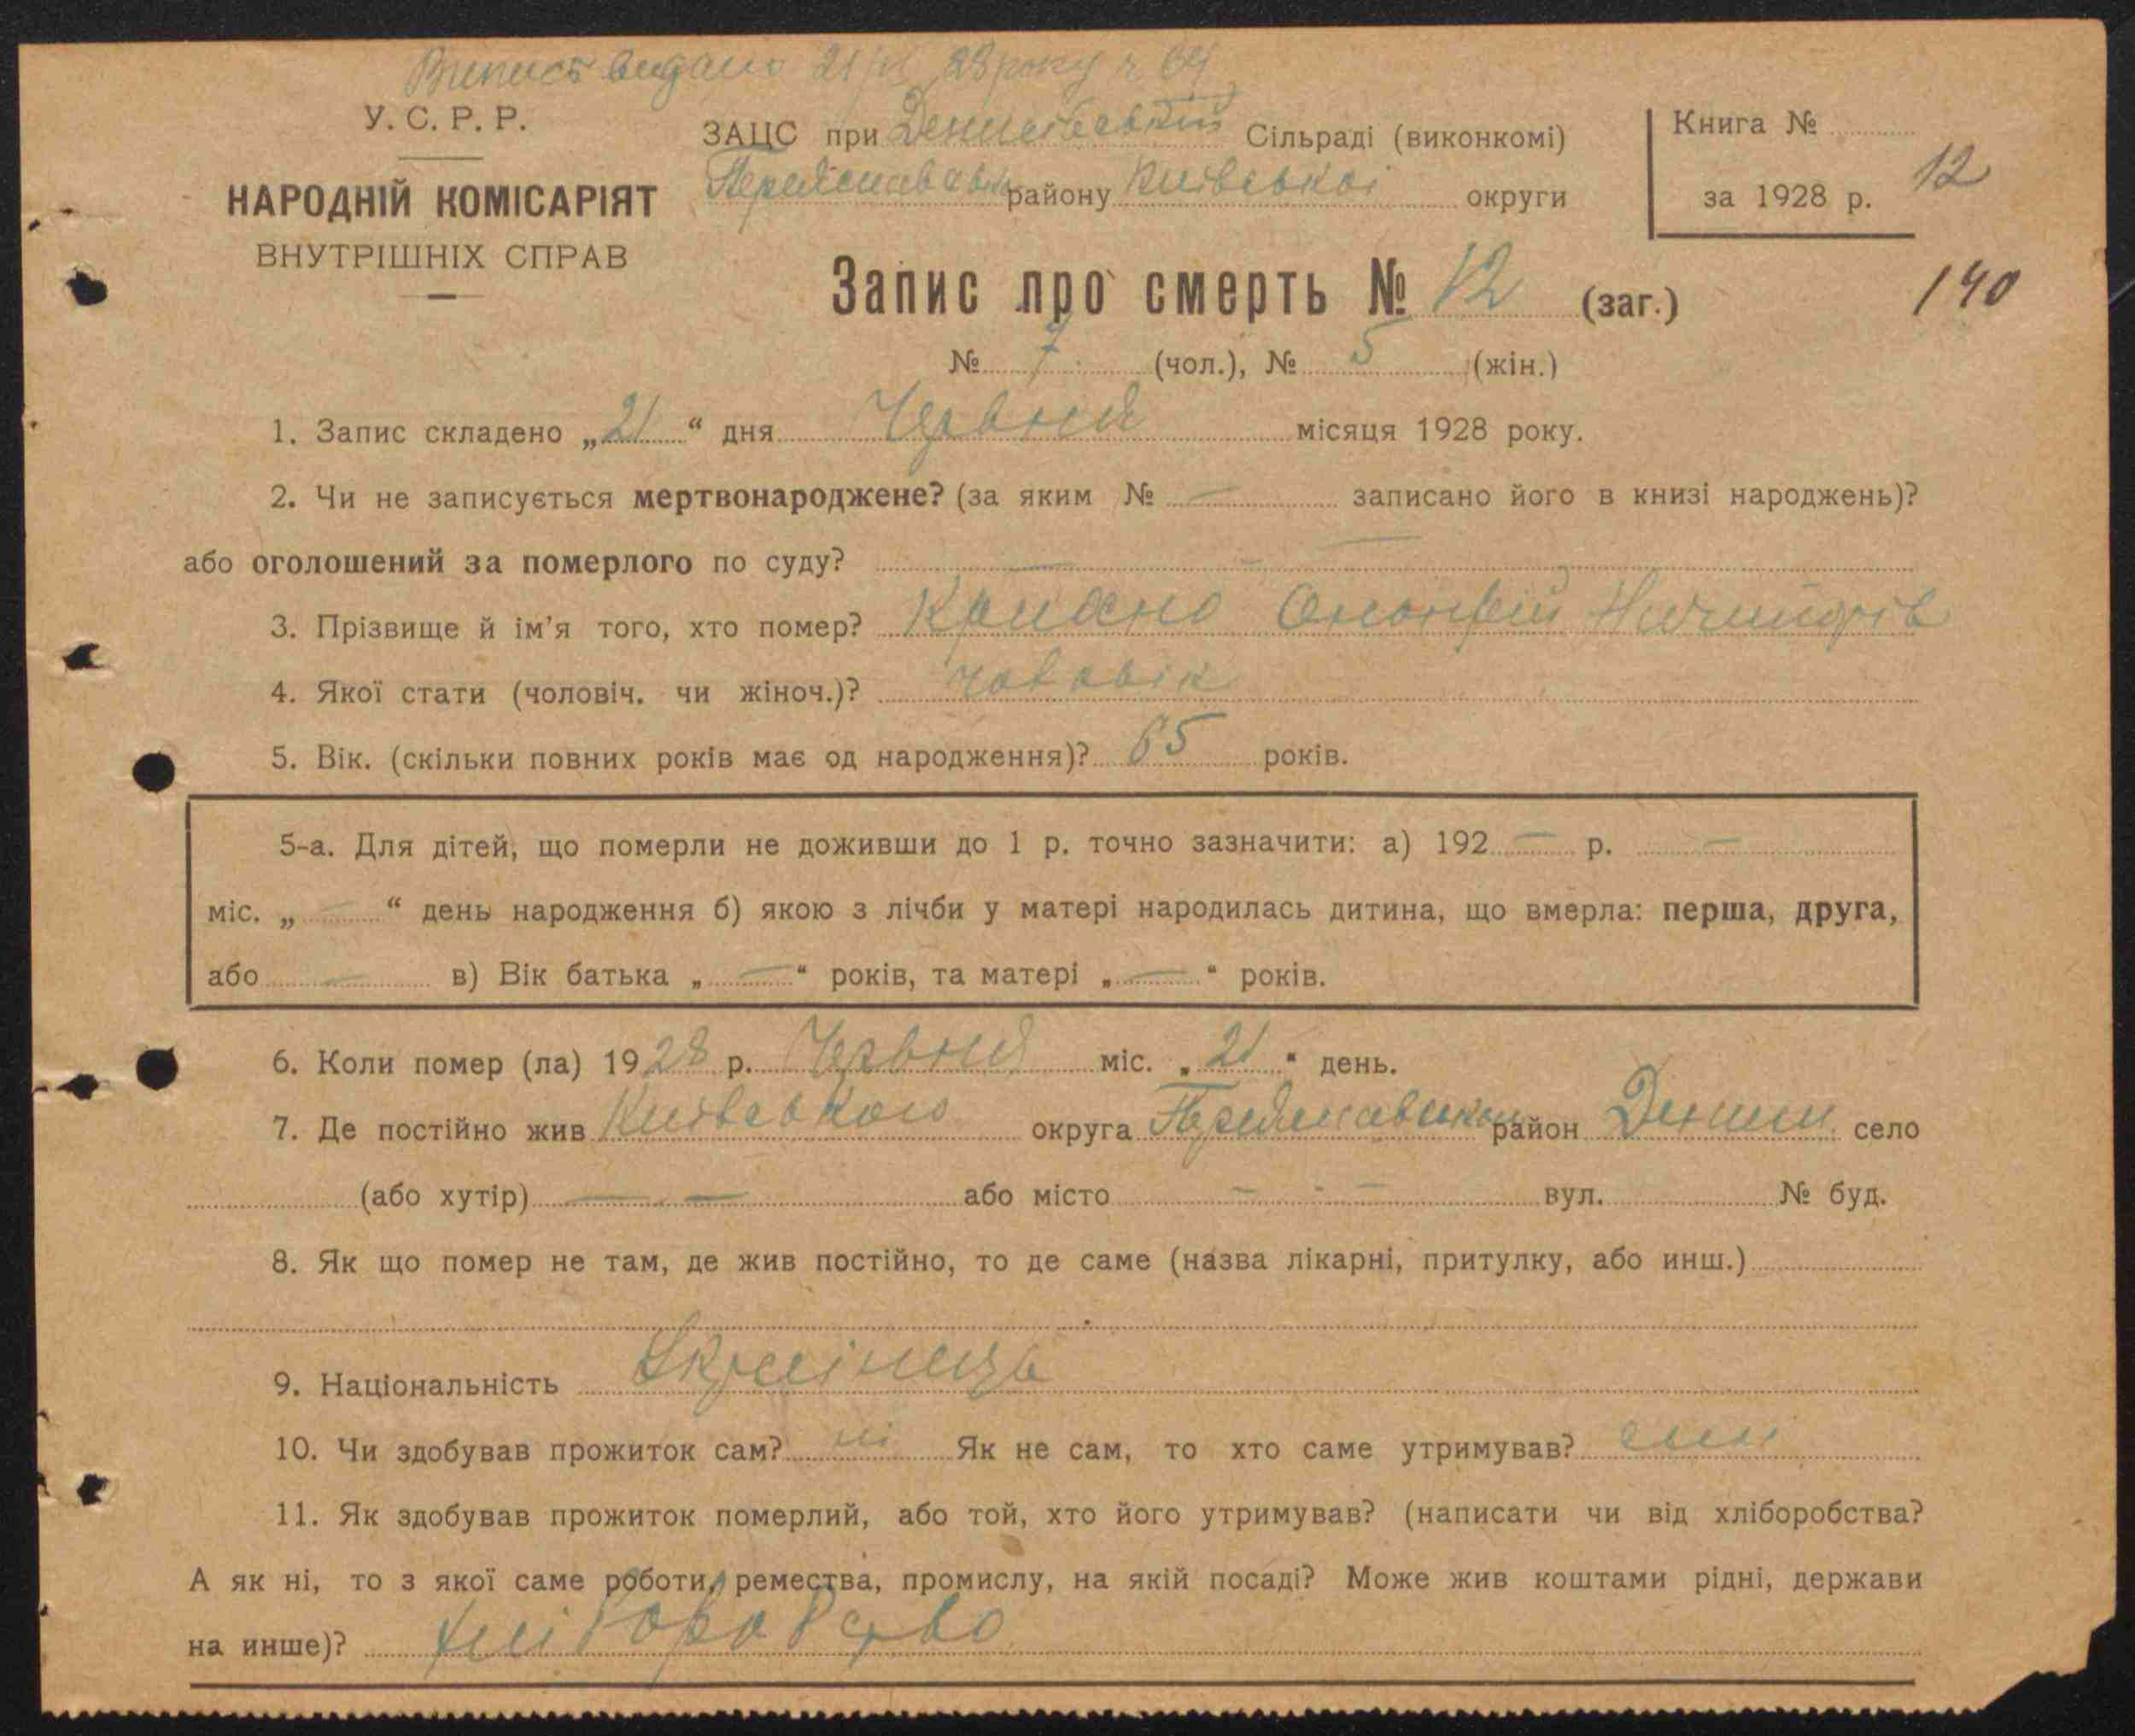 Випись видано 21/VI 28 року
У. С. Р. Р.
НАРОДНІЙ КОМІСАРІЯТ
ВНУТРІШНІХ СПРАВ
ЗАЦС при Сільраді (виконкомі)
району Київської округи
Книга №
за 1928 р.
12
Запис про смерть № 12 (заг.)
140
№ 7 (чол.), № 5 (жін.)
1. Запис складено „21“ дня Червня місяця 1928 року.
2. Чи не записується мертвонароджене? (за яким № — записано його в книзі народжень)?
або оголошений за померлого по суду? —
3. Прізвище й ім'я того, хто помер?
4. Якої стати (чоловіч. чи жіноч.)? чоловік
5. Вік. (скільки повних років має од народження)? 65 років.
5-а. Для дітей, що померли не доживши до 1 р. точно зазначити: а) 192 — р. —
міс. „ — “ день народження б) якою з лічби у матері народилась дитина, що вмерла: перша, друга,
або — в) Вік батька „ — “ років, та матері „ — “ років.
6. Коли помер (ла) 1928 р. Червня міс. „21“ день.
7. Де постійно жив округа район Денеси село
(або хутір) — — або місто — - — вул. № буд.
8. Як що помер не там, де жив постійно, то де саме (назва лікарні, притулку, або инш.)
9. Національність Українець
10. Чи здобував прожиток сам? ні Як не сам, то хто саме утримував? син
11. Як здобував прожиток померлий, або той, хто його утримував? (написати чи від хліборобства?
А як ні, то з якої саме роботи, ремества, промислу, на якій посаді? Може жив коштами рідні, держави
на инше)? хліборобство